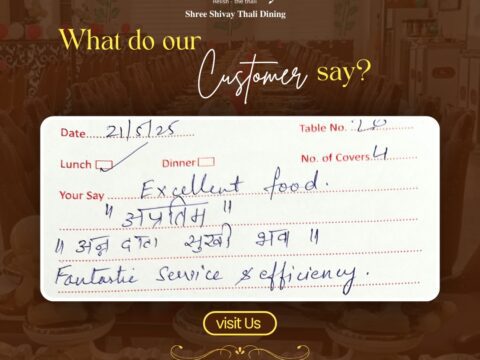 Relish - the thali
Shree Shivay Thali Dining
What do our
Customer say?
Date 21/5/25
Table No.
Lunch
Dinner
No. of Covers 4
Your Say Excellent food.
"अप्रतिम"
॥ अन्न दाता सुखी भव ॥
Fantastic Service & efficiency.
visit Us